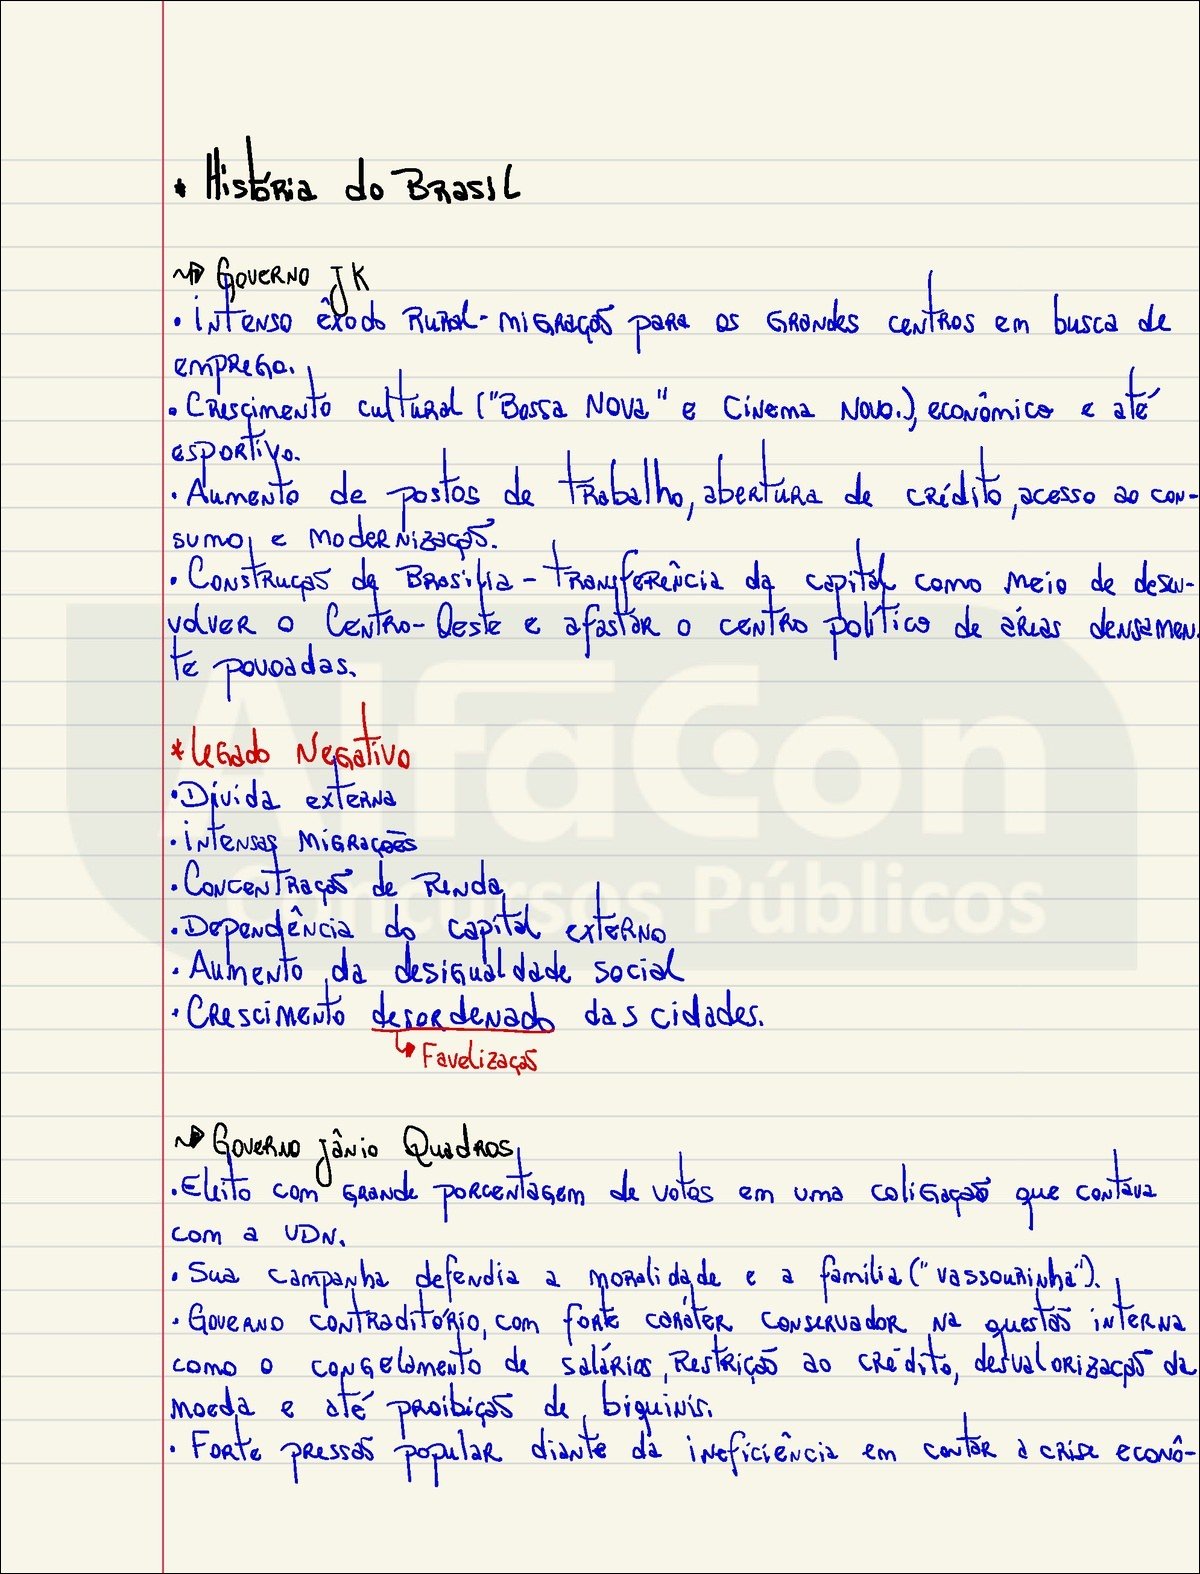 * História do Brasil
~> Governo JK
• Intenso êxodo rural - migração para os grandes centros em busca de
emprego.
• Crescimento cultural ("Bossa Nova" e Cinema Novo.), econômico e até
esportivo.
• Aumento de postos de trabalho, abertura de crédito, acesso ao con-
sumo e modernização.
• Construção de Brasília - transferência da capital como meio de desen-
volver o Centro-Oeste e afastar o centro político de áreas densamen-
te povoadas.
* Legado Negativo
• Dívida externa
• Intensas migrações
• Concentração de renda
• Dependência do capital externo
• Aumento da desigualdade social
• Crescimento desordenado das cidades.
↳ Favelização
~> Governo Jânio Quadros
• Eleito com grande porcentagem de votos em uma coligação que contava
com a UDN.
• Sua campanha defendia a moralidade e a família ("vassourinha").
• Governo contraditório, com forte caráter conservador na questão interna
como o congelamento de salários, restrição ao crédito, desvalorização da
moeda e até proibição de biquinis.
• Forte pressão popular diante da ineficiência em contar a crise econô-
AlfaCon
Concursos Públicos